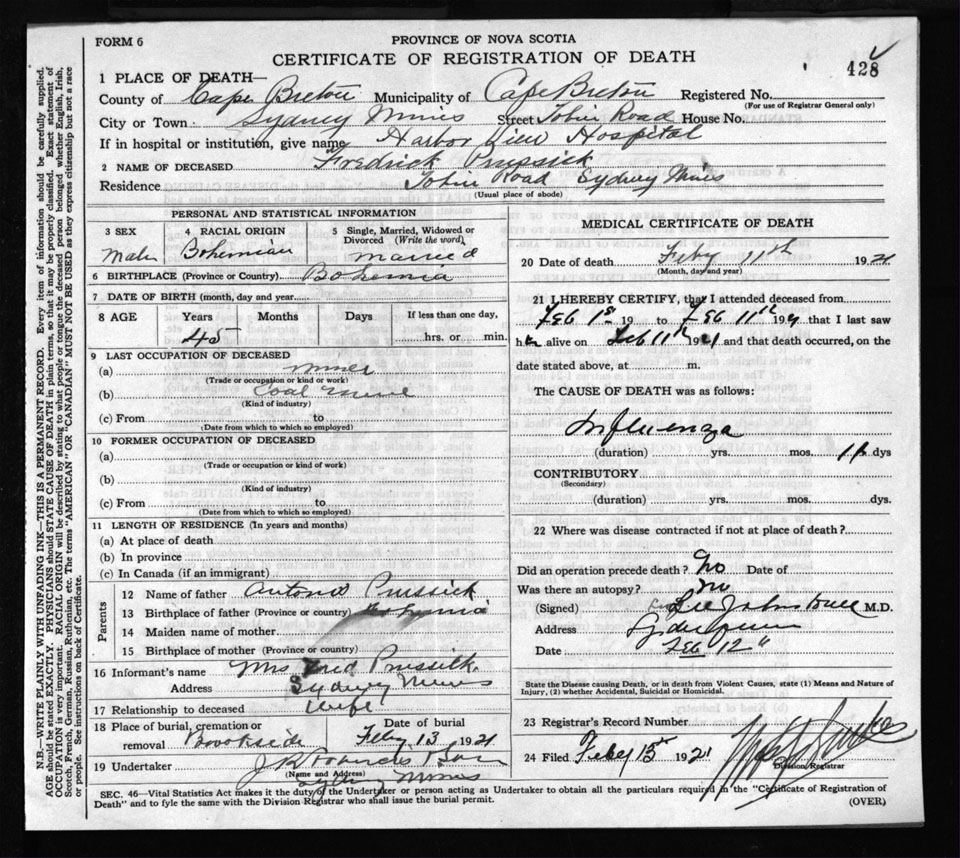 FORM 6
PROVINCE OF NOVA SCOTIA
CERTIFICATE OF REGISTRATION OF DEATH
428
1 PLACE OF DEATH—
County of Cape Breton Municipality of Cape Breton Registered No.
(For use of Registrar General only)
City or Town Sydney Mines Street Tobin Road House No.
If in hospital or institution, give name Harbor View Hospital
2 NAME OF DECEASED Fredrick Prussick
Residence Tobin Road Sydney Mines
(Usual place of abode)
PERSONAL AND STATISTICAL INFORMATION
3 SEX Male
4 RACIAL ORIGIN Bohemian
5 Single, Married, Widowed or Divorced (Write the word) married
6 BIRTHPLACE (Province or Country) Bohemia
7 DATE OF BIRTH (month, day and year)
8 AGE Years Months Days If less than one day,
45 hrs. or min.
9 LAST OCCUPATION OF DECEASED
(a) miner
(Trade or occupation or kind or work)
(b) Coal mine
(Kind of industry)
(c) From to
(Date from which to which so employed)
10 FORMER OCCUPATION OF DECEASED
(a)
(Trade or occupation or kind of work)
(b)
(Kind of industry)
(c) From to
(Date from which to which so employed)
11 LENGTH OF RESIDENCE (In years and months)
(a) At place of death
(b) In province
(c) In Canada (if an immigrant)
Parents
12 Name of father Prussick
13 Birthplace of father (Province or country)
14 Maiden name of mother
15 Birthplace of mother (Province or country)
16 Informant's name Mrs Fred Prussick
Address Sydney Mines
17 Relationship to deceased Wife
18 Place of burial, cremation or removal Brookside
Date of burial Feby 13 1921
19 Undertaker & Son
(Name and Address) Sydney Mines
MEDICAL CERTIFICATE OF DEATH
20 Date of death Feby 11th 1921
(Month, day and year)
21 I HEREBY CERTIFY, that I attended deceased from
Feb 1st 19 to Feb 11th 1921 that I last saw
him alive on Feb 11th 1921 and that death occurred, on the
date stated above, at m.
The CAUSE OF DEATH was as follows:
Influenza
(duration) yrs. mos. 11 dys
CONTRIBUTORY
(Secondary)
(duration) yrs. mos. dys.
22 Where was disease contracted if not at place of death?
Did an operation precede death? No Date of
Was there an autopsy? no
(Signed) Johnstone M.D.
Address
Date Feb 12"
State the Disease causing Death, or in death from Violent Causes, state (1) Means and Nature of
Injury, (2) whether Accidental, Suicidal or Homicidal.
23 Registrar's Record Number
24 Filed Feby 15 1921
Division Registrar
SEC. 46—Vital Statistics Act makes it the duty of the Undertaker or person acting as Undertaker to obtain all the particulars required in the "Certificate of Registration of
Death" and to fyle the same with the Division Registrar who shall issue the burial permit.
(OVER)
N.B.—WRITE PLAINLY WITH UNFADING INK—THIS IS A PERMANENT RECORD. Every item of information should be carefully supplied.
AGE should be stated EXACTLY. PHYSICIANS should STATE CAUSE OF DEATH in plain terms, so that it may be properly classified. Exact statement of
OCCUPATION is very important. RACIAL ORIGIN will be described by stating to what people or tongue the deceased person belonged whether English, Irish,
Scotch, French, German, Russian, Ruthenian, etc. The terms "AMERICAN" or "CANADIAN" MUST NOT BE USED as they express citizenship but not a race
or people. See instructions on back of Certificate.